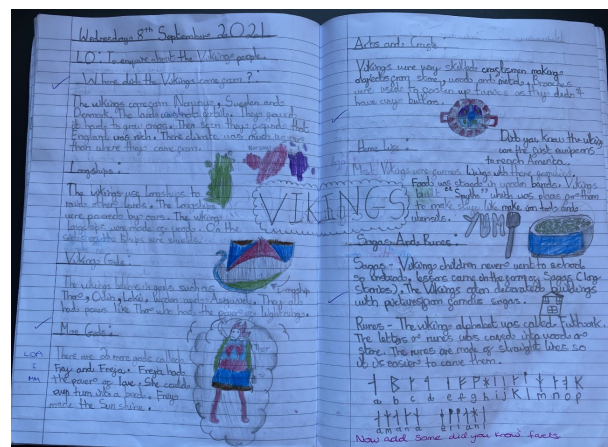 Wednesday 8th September 2021
LO: To enquire about the Vikings people.
Where did the Vikings come from?:
The vikings came from Norway, Sweden and
Denmark. The land was not fertile. They found
it hard to grow crops. Then seen they found that
England was rich. There climate was much
than where they came from.
Longships:
The vikings use longships to
raid others lands. The longships
were powerd by oars. The vikings
longships were made of wood. On the
sides of the ships were shields.
Viking Gods:
The vikings belive in gods such as
Thor, Odin, Loki, Asgard. They all
had powers like Thor who had the power of lightning.
More Gods:
There are 2 more gods called
Fray and Freya. Freya had
the power of love. She could
even turn into a bird. Freg
made the Sun shine.
Thor
LOA
MM
VIKINGS
Arts and Crafts
Vikings were very skilled craftsmen making
objects from stone, wood and metal. Brooches
were used to fasten up tunics as they didn't
have any buttons.
Did you know the vikings
were the first europeans
to reach America.
Home life:
Most Vikings were farmers. Living with there families.
Food was stored in wooden barrels. Vikings
" which was from them
to make iron tools and
utensils.
YUM
Sagas And Runes:
Sagas - Vikings children never went to school
so instead, lessons came in the form of Sagas (long
stories). The Vikings often decorated buildings
with pictures from famous sagas.
Runes - The viking alphabet was called Futhork.
The letters or runes was carved into wood or
stone. The runes are made of straight lines so
it is easier to carve them.
a b c d e f g h i j k l m n o p
Now add some did you know facts